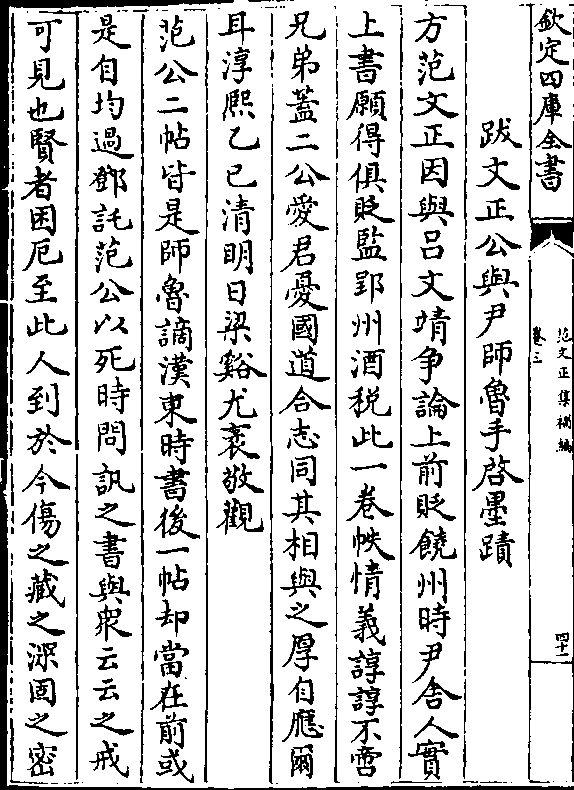 欽定四庫全書
范文正集補編
卷三
四十一
跋文正公與尹師魯手啓墨蹟
方范文正因與吕文靖争論上前貶饒州時尹舍人實
上書願得俱貶監郢州酒税此一卷帙情義諄諄不啻
兄弟蓋二公愛君憂國道合志同其相與之厚自應爾
耳淳熙乙巳清明日梁谿尤袤敬觀
范公二帖皆是師魯謫漢東時書後一帖却當在前或
是自均過鄧託范公以死時問訊之書與衆云云之戒
可見也賢者困厄至此人到於今傷之藏之深固之密